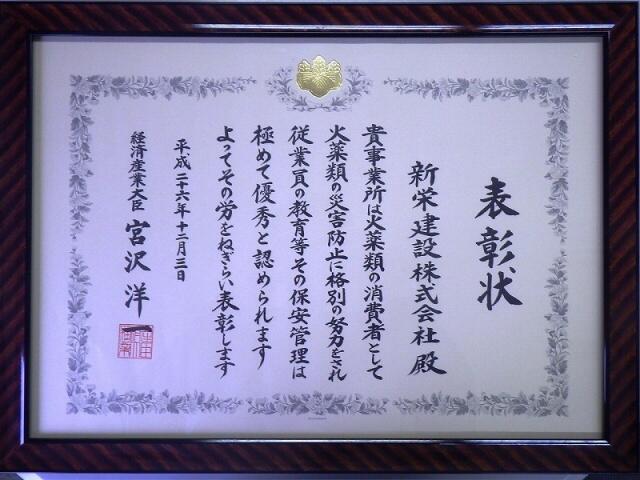 表彰状
新栄建設株式会社 殿
貴事業所は火薬類の消費者として
火薬類の災害防止に格別の努力をされ
従業員の教育等その保安管理は
極めて優秀と認められます
よってその労をねぎらい表彰します
平成二十六年十二月三日
経済産業大臣 宮沢 洋一